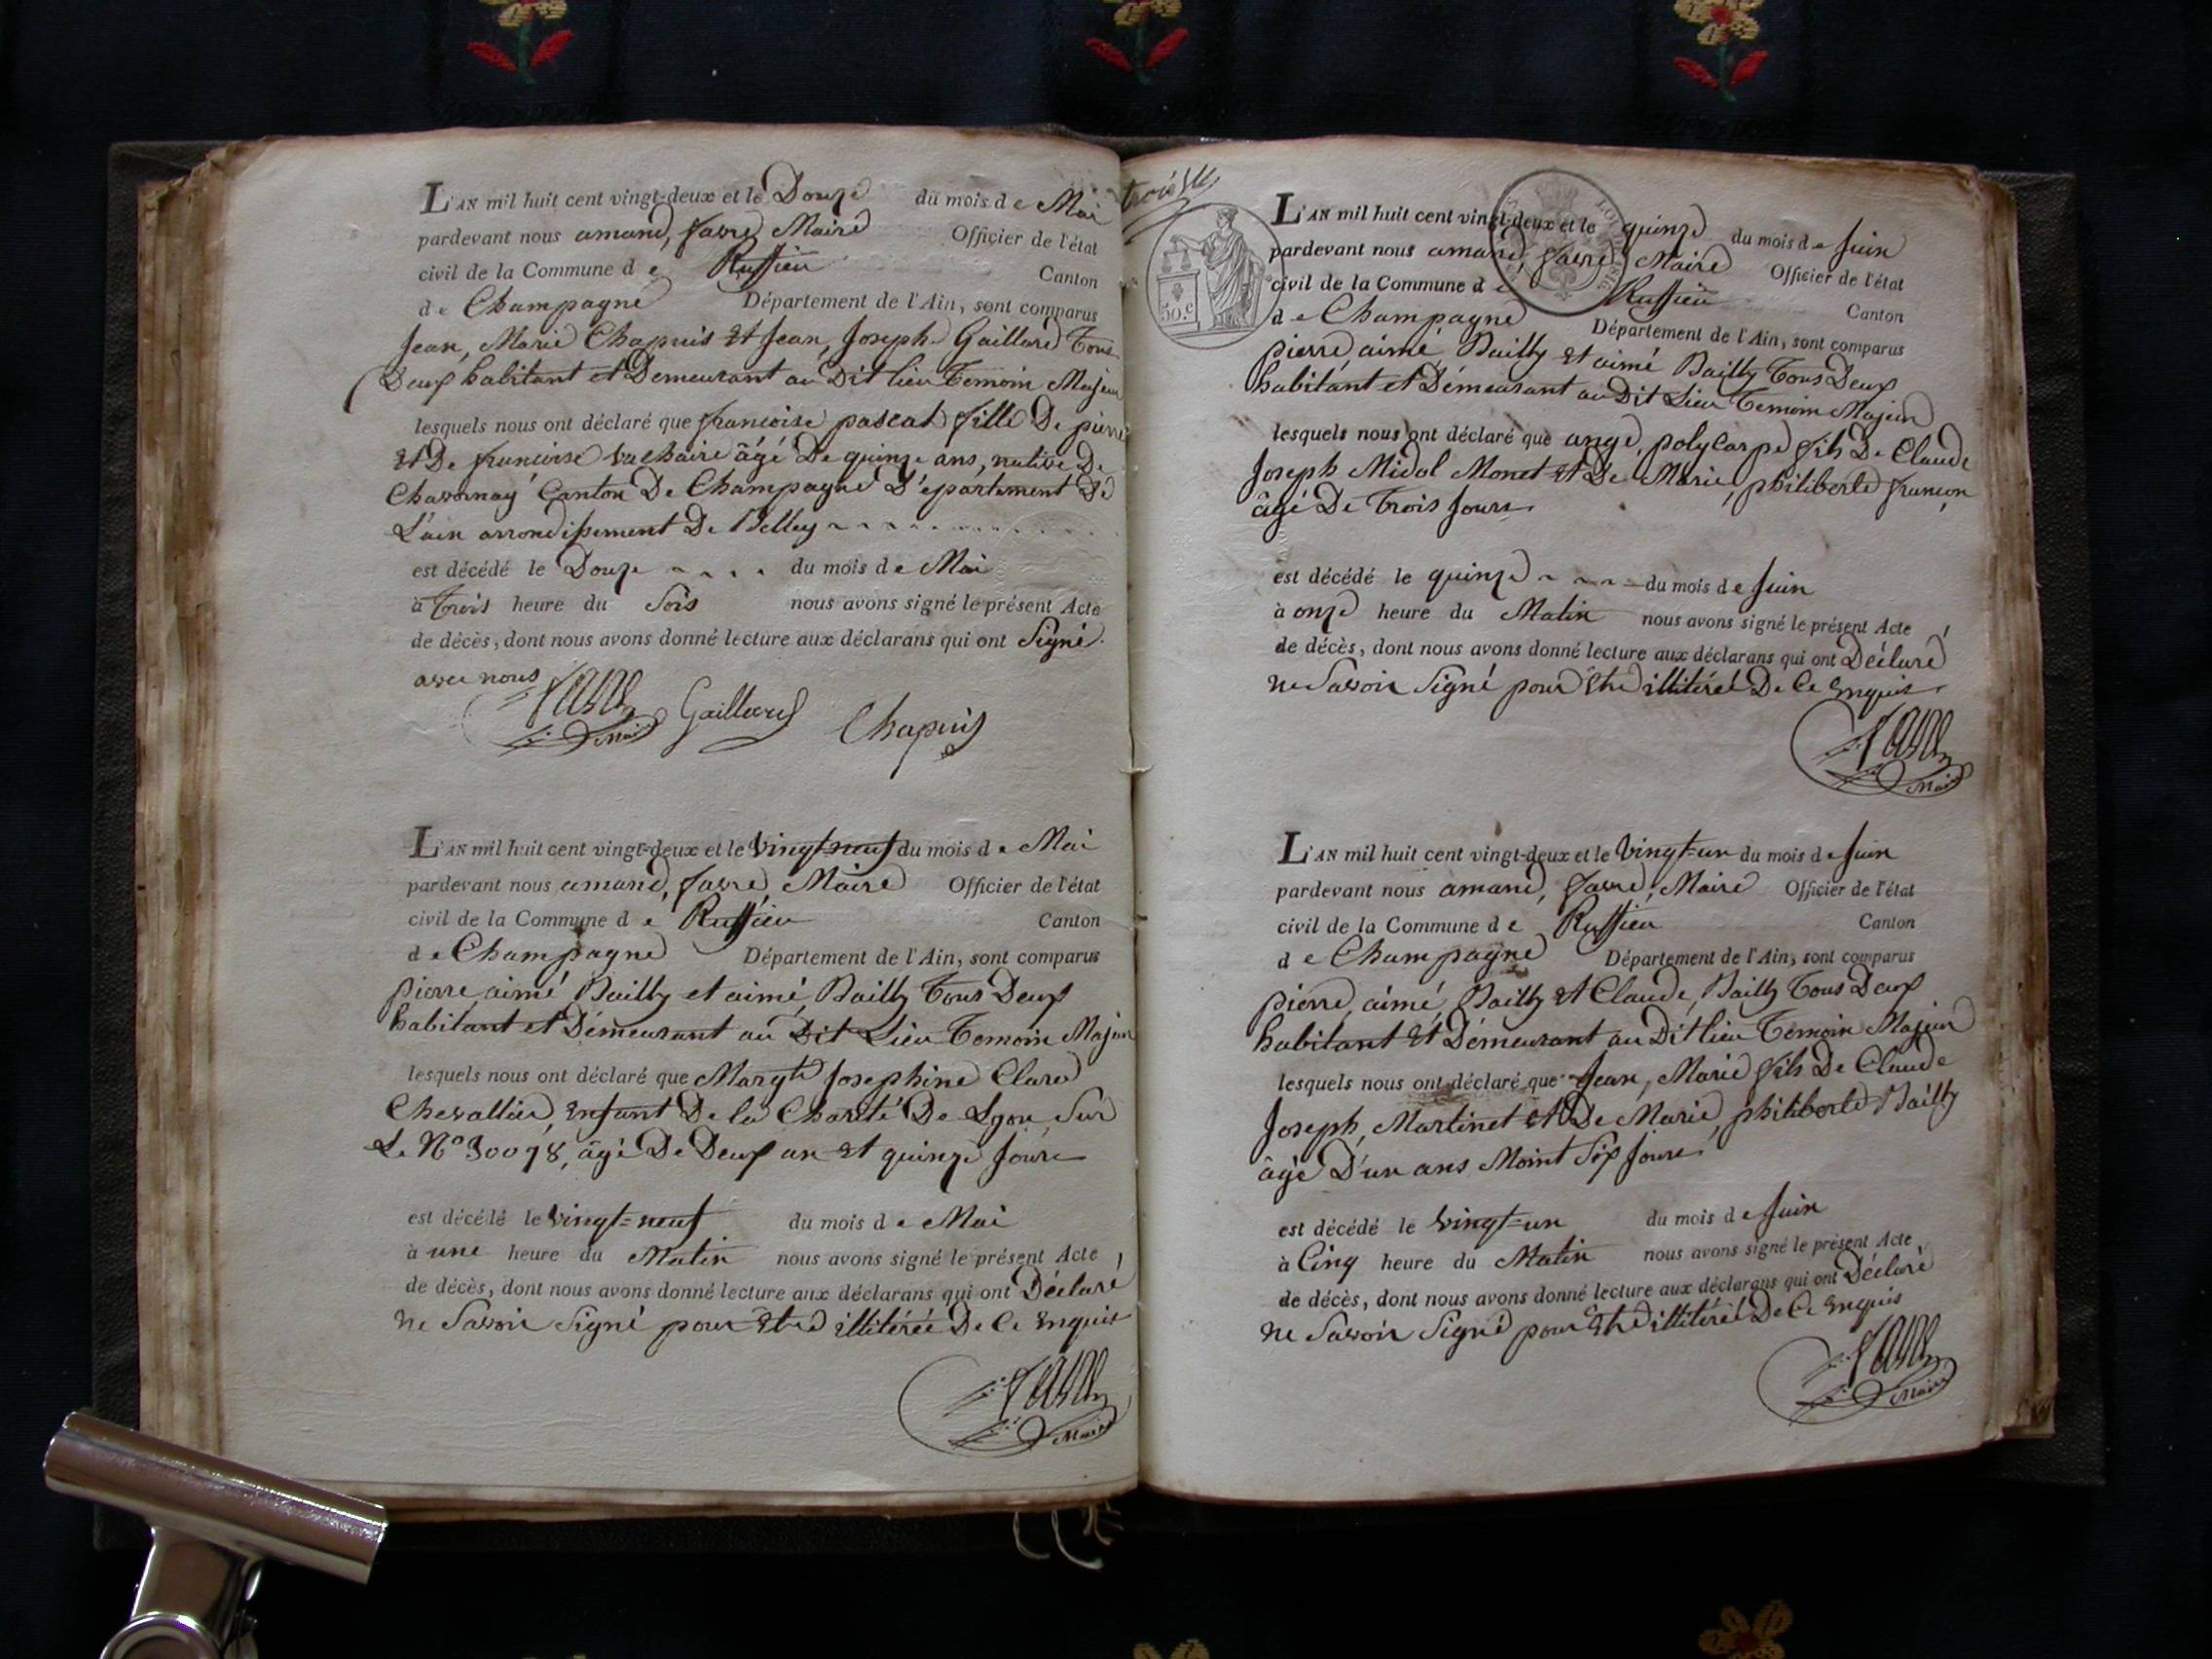 L'AN mil huit cent vingt-deux et le Douze du mois de Mai
pardevant nous amand, favre, Maire Officier de l'état
civil de la Commune de Ruffieu Canton
de Champagne Département de l'Ain, sont comparus
Jean, Marie Chapuis et Jean, Joseph Gaillard Tous
Deux habitant et Demeurant au Dit lieu Temoin Majeur
lesquels nous ont déclaré que francoise pascal fille De pierre
et De francoise âgé De quinze ans, native De
Chavornay Canton De Champagne D'epartement De
L'ain arrondissement De Belley
est décédé le Douze du mois de Mai
à trois heure du Soir nous avons signé le présent Acte
de décès, dont nous avons donné lecture aux déclarans qui ont Signé
avec nous
favre Gaillard Chapuis
Maire
L'AN mil huit cent vingt-deux et le vingt-neuf du mois de Mai
pardevant nous amand, favre, Maire Officier de l'état
civil de la Commune de Ruffieu Canton
de Champagne Département de l'Ain, sont comparus
pierre, aimé, Bailly et aimé, Bailly Tous Deux
habitant et Démeurant au Dit Lieu Temoin Majeur
lesquels nous ont déclaré que Margte Josephine Clare
Chevallier, enfant De la Charité De Lyon, Sur
Le N° 30078, âgé De Deux an et quinze jours
est décédé le vingt=neuf du mois de Mai
à une heure du Matin nous avons signé le présent Acte
de décès, dont nous avons donné lecture aux déclarans qui ont Déclaré
ne Savoir Signé pour Etre illitérée De Ce enquis
favre
Maire
trois
50.c
L'AN mil huit cent vingt-deux et le quinze du mois de Juin
pardevant nous amand, favre, Maire Officier de l'état
civil de la Commune de Ruffieu Canton
de Champagne Département de l'Ain, sont comparus
pierre, aimé, Bailly et aimé Bailly Tous Deux
habitant et Démeurant au Dit Lieu Temoin Majeur
lesquels nous ont déclaré que ange, polycarpe fils De Claude
Joseph Midol Monet et De Marie, philiberte françon
âgé De Trois Jours
est décédé le quinze du mois de Juin
à onze heure du Matin nous avons signé le présent Acte
de décès, dont nous avons donné lecture aux déclarans qui ont Déclaré
ne Savoir Signé pour Etre illitéré De Ce enquis
favre
Maire
L'AN mil huit cent vingt-deux et le vingt=un du mois de Juin
pardevant nous amand, favre, Maire Officier de l'état
civil de la Commune de Ruffieu Canton
de Champagne Département de l'Ain, sont comparus
pierre, aimé, Bailly et Claude, Bailly Tous Deux
habitant et Démeurant au Dit lieu Temoin Majeur
lesquels nous ont déclaré que Jean, Marie fils De Claude
Joseph, Martinet et De Marie, philiberte Bailly
âgé D'un ans Moint Six Jours
est décédé le vingt=un du mois de Juin
à Cinq heure du Matin nous avons signé le présent Acte
de décès, dont nous avons donné lecture aux déclarans qui ont Déclaré
ne Savoir Signé pour Etre illitéré De Ce enquis
favre
Maire